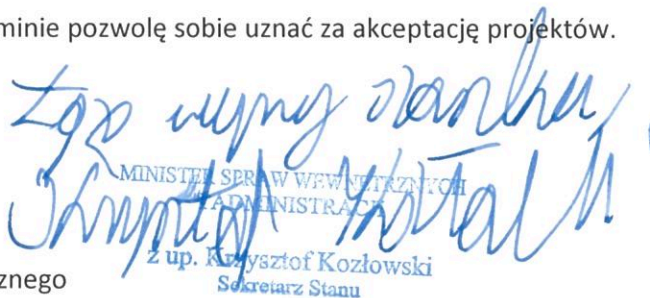 minie pozwolę sobie uznać za akceptację projektów.
Łączę wyrazy szacunku,
MINISTER SPRAW WEWNĘTRZNYCH
I ADMINISTRACJI
z up. Krzysztof Kozłowski
Sekretarz Stanu
znego